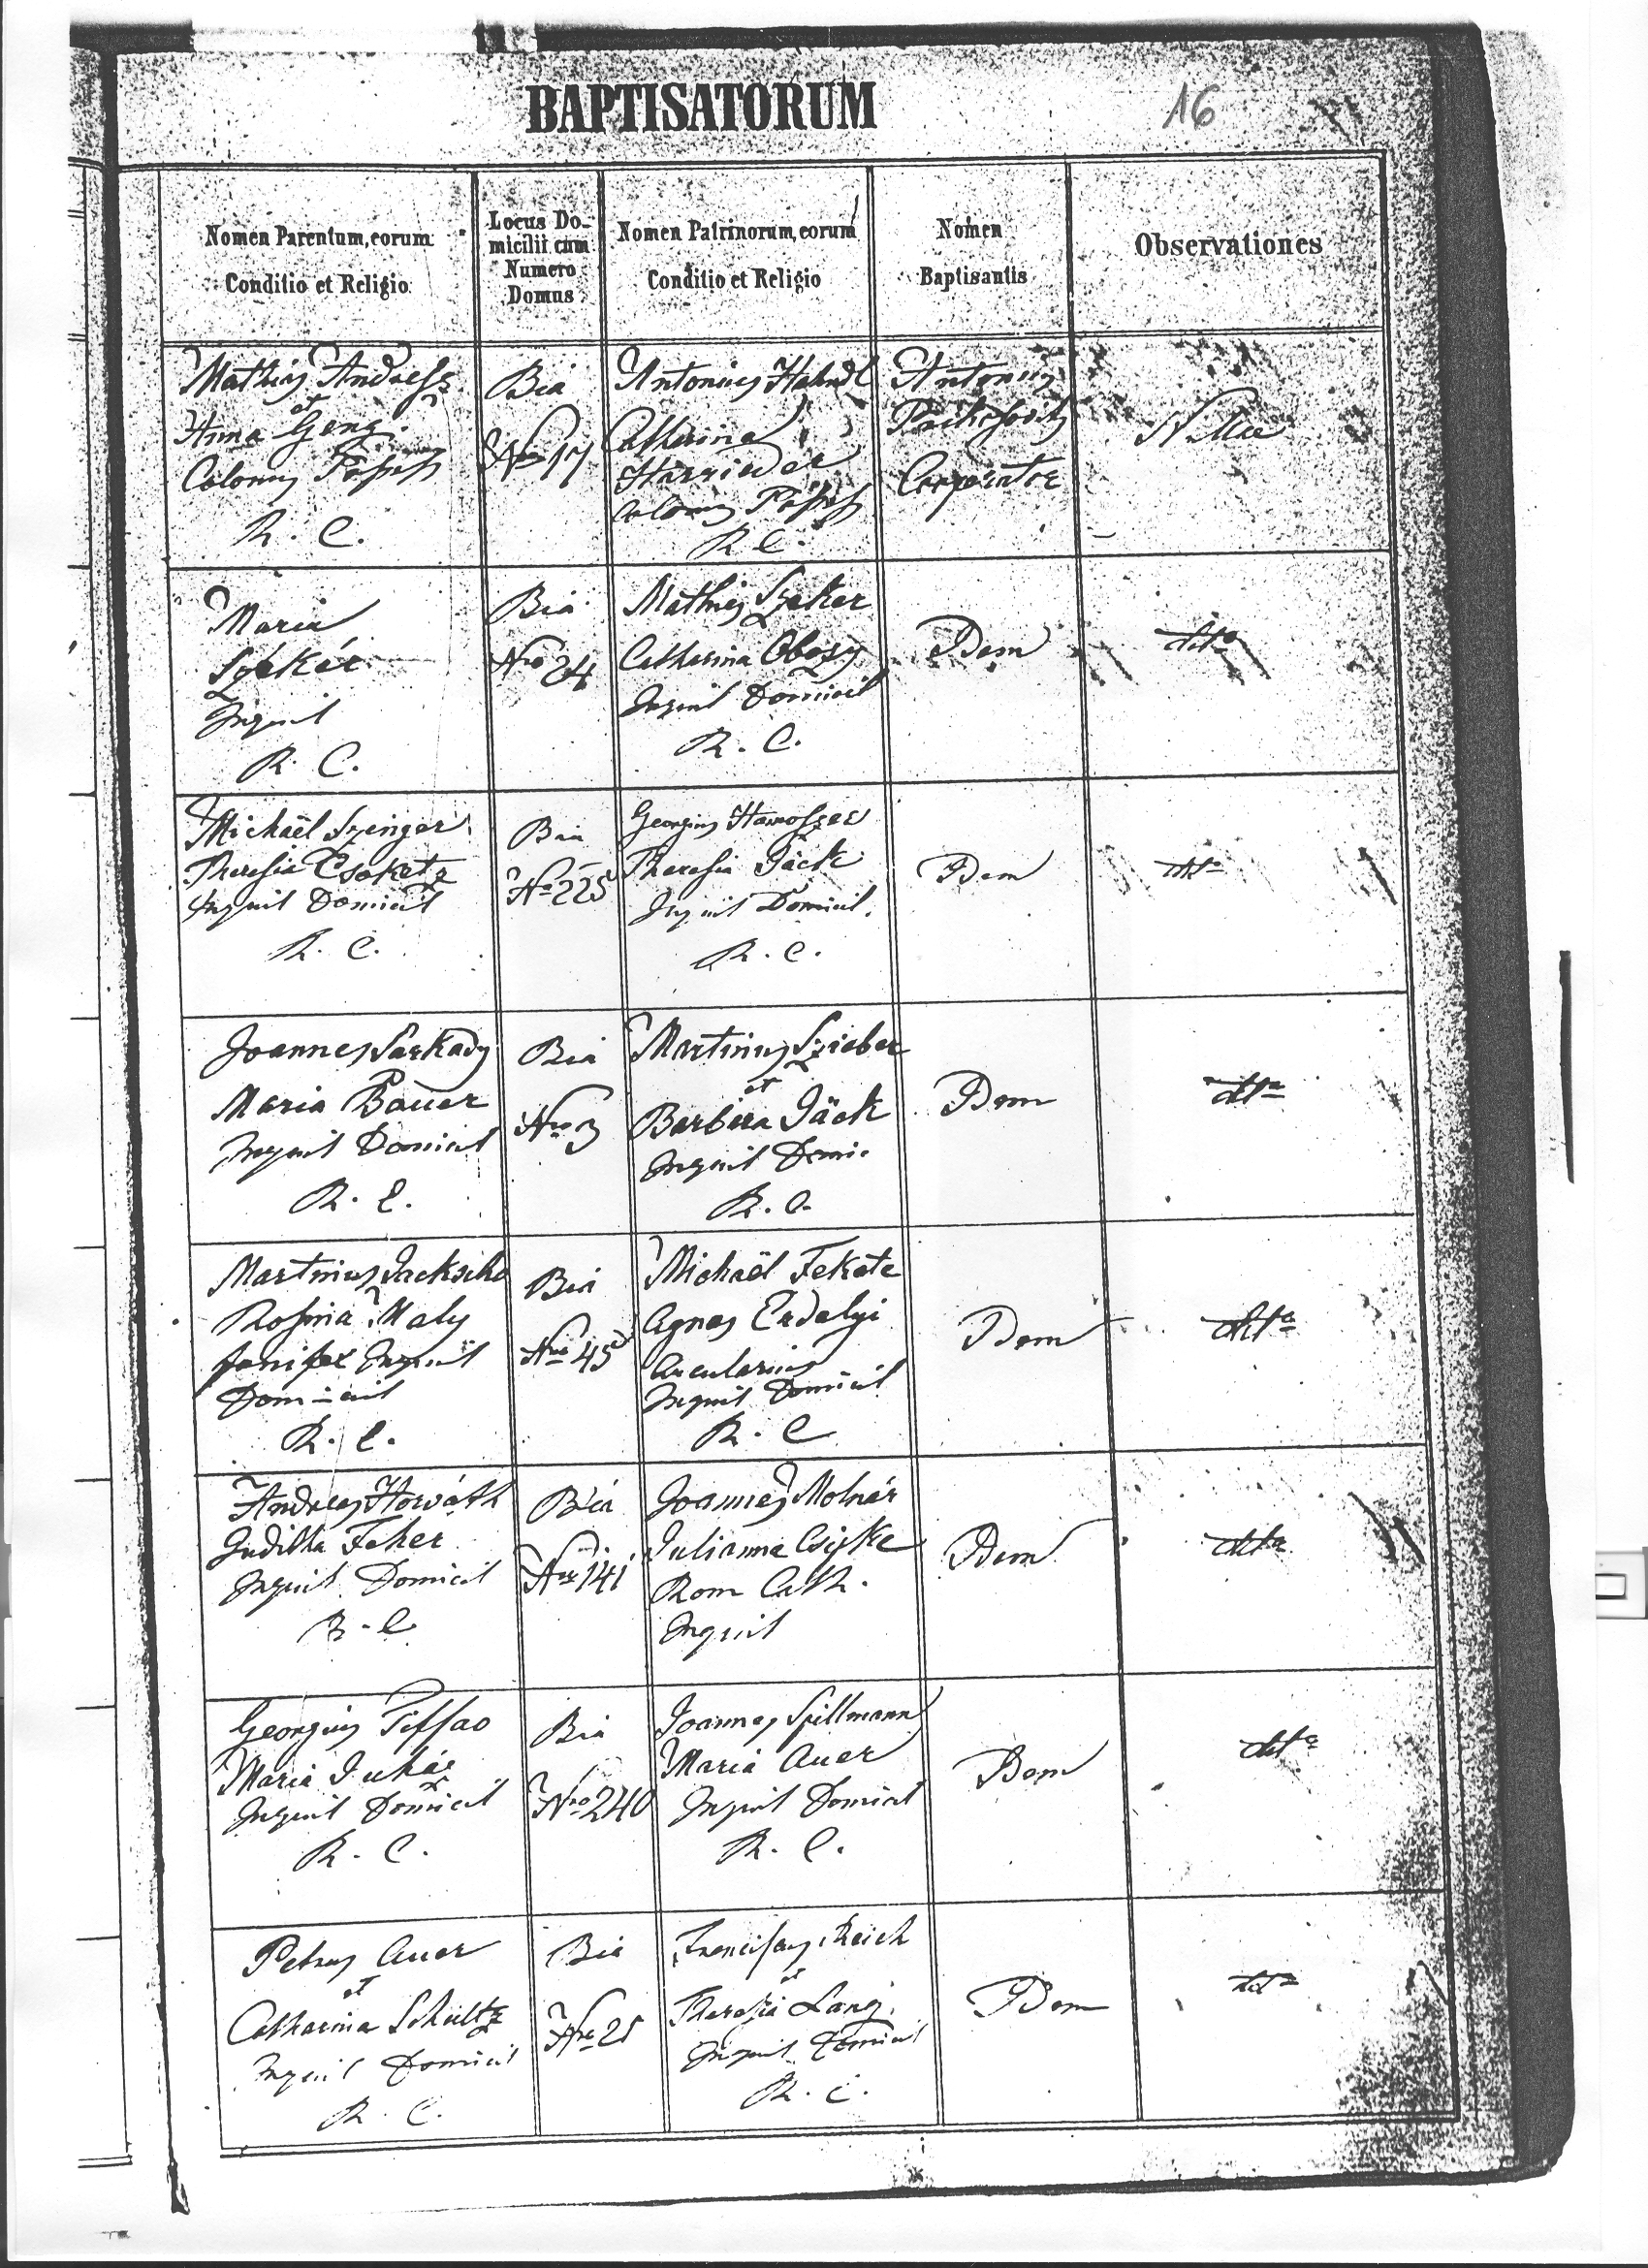 BAPTISATORUM
16
Nomen Parentum, eorum
Conditio et Religio
Locus Do-
micilii cum
Numero
Domus
Nomen Patrinorum, eorum
Conditio et Religio
Nomen
Baptisantis
Observationes
Mathias
et
Anna Geng
Colonus
R. C.
Bia
Nro 17
Antonius Hahndl
Catharina
Colonus
R C.
Antonius
Nullae
Maria
Szekér
Inquil
R. C.
Bia
Nro 24
Mathias Szeker
Catharina
Inquil Domicil
R. C.
Idem
ditto
Michaël Szinger
Theresia
Inquil Domicil
R. C.
Bia
Nro 225
Georgius
Theresia Jäck
Inquil Domicil.
R. C.
Idem
ditto
Joannes Sárkady
Maria Bauer
Inquil Domicil
R. C.
Bia
Nro 3
Martinus Szieber
et
Barbara Jäck
Inquil Domic
R. C.
Idem
ditto
Martinus
Rosina Maly
Inquil
Domicil
R. C.
Bia
Nro 45
Michaël Fekete
Agnes Erdelyi
Arcularius
Inquil Domicil
R. C
Idem
ditto
Andreas Horváth
Juditha Feher
Inquil Domicil
R. C
Bia
Nro 141
Joannes Molnár
Julianna Csizke
Rom Cath.
Inquil
Idem
ditto
Georgius
Maria Juhász
Inquil Domicil
R. C.
Bia
Nro 240
Joannes Spillmann
Maria Auer
Inquil Domicil
R. C.
Idem
ditto
Petrus Auer
et
Catharina Schultz
Inquil Domicil
R. C.
Bia
Nro 25
Franciscus Reich
et
Theresia Lang
Inquil Domicil
R. C.
Idem
ditto